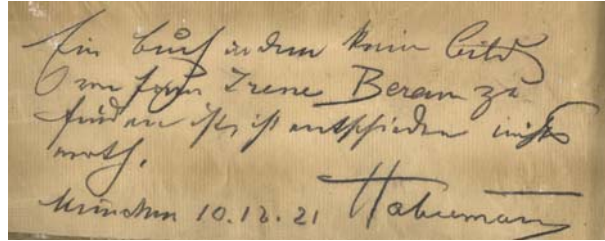 Ein Buch in dem kein Bild
von Frau Irene Beran zu
finden ist, ist entschieden nichts
werth.
München 10.12.21 Habermann